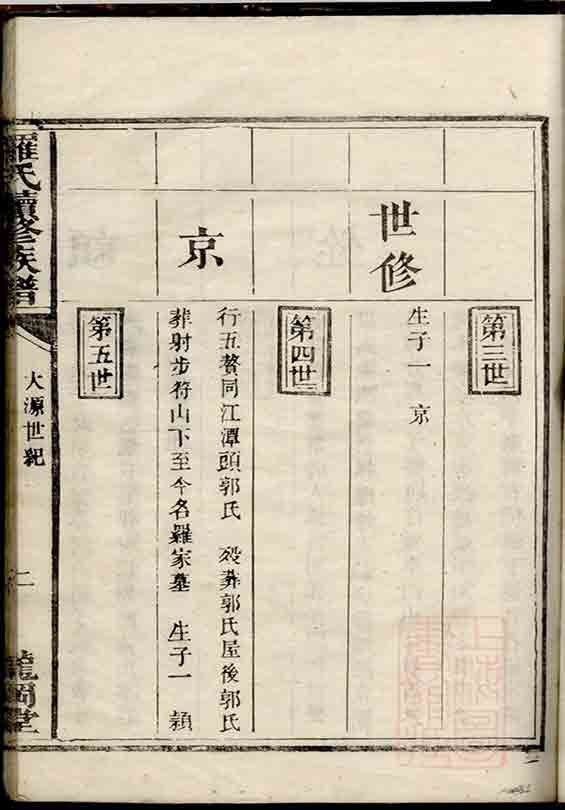 第三世
世修
生子一 京
第四世
京
行五贅同江潭頭郭氏 歿葬郭氏屋後郭氏
葬射步符山下至今名羅家墓 生子一 穎
第五世
羅氏續修族譜
大源世紀
二